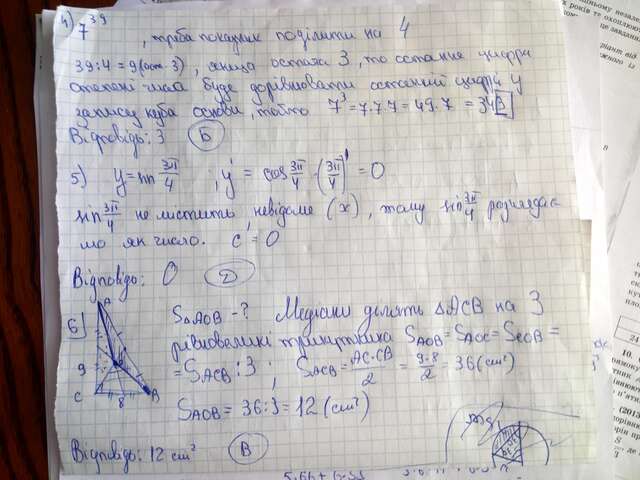 4) 7³⁹, треба показник поділити на 4
39:4=9(ост 3), якщо остача 3, то остання цифра
степеня числа буде дорівнювати останній цифрі у
запису куба основи, тобто 7³=7·7·7=49·7=343
Відповідь: 3 Б
5) y=sin 3π/4, y'=cos 3π/4·(3π/4)'=0
sin 3π/4 не містить невідоме (x), тому sin 3π/4 розглядає
мо як число. c'=0
Відповідь: 0 Д
6) S△AOB-? Медіани ділять △ACB на 3
рівновеликі трикутника S_AOB=S_AOC=S_COB=
=S_ACB:3; S_ACB=AC·CB/2=9·8/2=36(см²)
S_AOB=36:3=12(см²)
A
9
C
8
B
Відповідь: 12 см² В